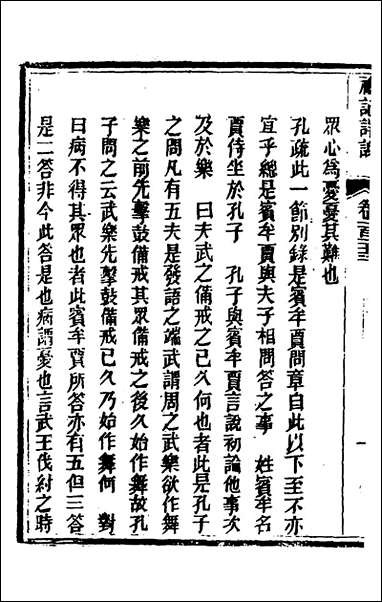 禮記詳說
卷一百三
一
眾心為憂憂其難也
孔疏此一節別錄是賓牟賈問章自此以下至不亦
宜乎總是賓牟賈與夫子相問答之事 姓賓牟名
賈侍坐於孔子 孔子與賓牟賈言說初論他事次
及於樂 曰夫武之備戒之已久何也者此是孔子
之問凡有五夫是發語之端武謂周之武樂欲作舞
樂之前先擊鼓備戒其眾備戒之後久始作舞故孔
子問之云武樂先擊鼓備戒已久乃始作舞何 對
曰病不得其眾也者此賓牟賈所答亦有五但三答
是二答非今此答是也病謂憂也言武王伐紂之時